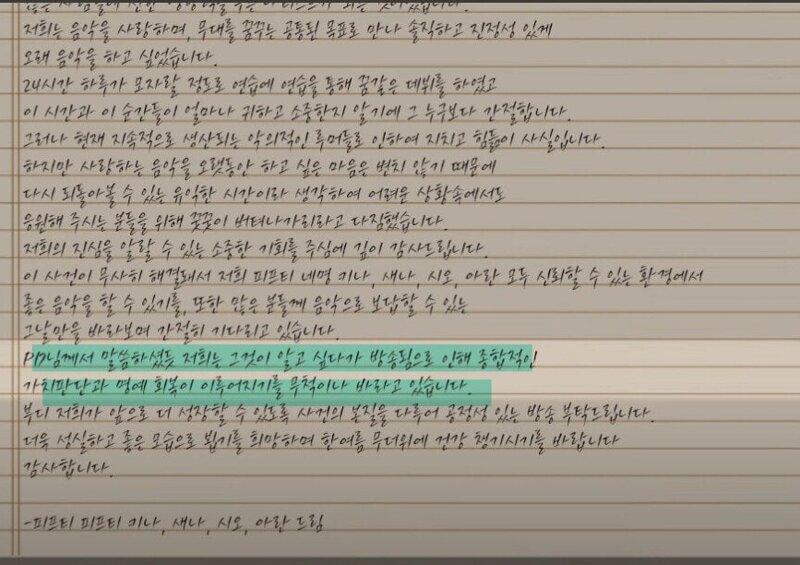 저희는 음악을 사랑하며, 무대를 꿈꾸는 공통된 목표로 만나 솔직하고 진정성 있게
오래 음악을 하고 싶었습니다.
24시간 하루가 모자랄 정도로 연습에 연습을 통해 꿈같은 데뷔를 하였고
이 시간과 이 순간들이 얼마나 귀하고 소중한지 알기에 그 누구보다 간절합니다.
그러나 현재 지속적으로 생산되는 악의적인 루머들로 인하여 지치고 힘듦이 사실입니다.
하지만 사랑하는 음악을 오랫동안 하고 싶은 마음은 변치 않기 때문에
다시 되돌아볼 수 있는 유익한 시간이라 생각하여 어려운 상황속에서도
응원해 주시는 분들을 위해 꿋꿋이 버텨나가리라고 다짐했습니다.
저희의 진심을 알랄 수 있는 소중한 기회를 주심에 깊이 감사드립니다.
이 사건이 무사히 해결돼서 저희 피프티 네명 키나, 새나, 시오, 아란 모두 신뢰할 수 있는 환경에서
좋은 음악을 할 수 있기를, 또한 많은 분들께 음악으로 보답할 수 있는
그날만을 바라보며 간절히 기다리고 있습니다.
PD님께서 말씀하셨듯 저희는 그것이 알고 싶다가 방송됨으로 인해 종합적인
가치판단과 명예 회복이 이루어지기를 무척이나 바라고 있습니다.
부디 저희가 앞으로 더 성장할 수 있도록 사건의 본질을 다루어 공정성 있는 방송 부탁드립니다.
더욱 성실하고 좋은 모습으로 뵙기를 희망하며 한여름 무더위에 건강 챙기시기를 바랍니다
감사합니다.
-피프티 피프티 키나, 새나, 시오, 아란 드림